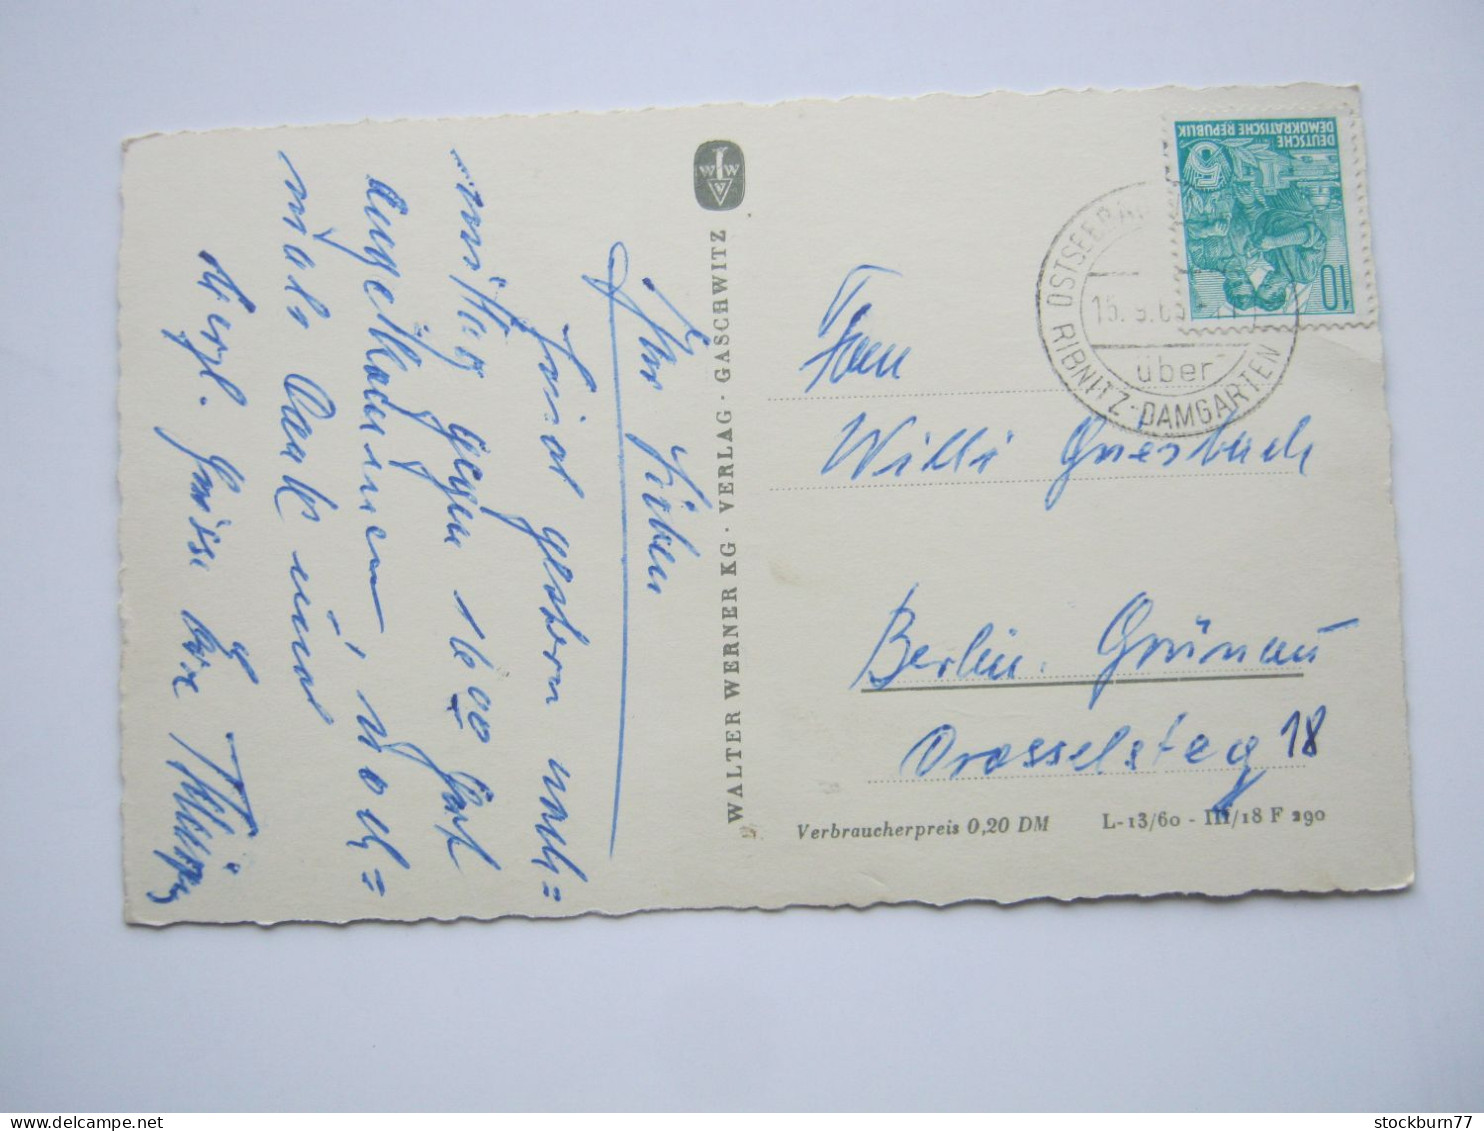 Ihr Lieben
sind gestern nach=
mittag gegen 16 00 gut
angekommen, noch=
mals Dank und
Herzl. Grüsse Eure
WALTER WERNER KG · VERLAG · GASCHWITZ
WWV
DEUTSCHE
DEMOKRATISCHE REPUBLIK
10
OSTSEEBAD
15. 9. 6
über
RIBNITZ-DAMGARTEN
Fam
Willi Griesbach
Berlin. Grünau
Drosselsteg 18
Verbraucherpreis 0,20 DM L-13/60 - III/18 F 290
stockburn77